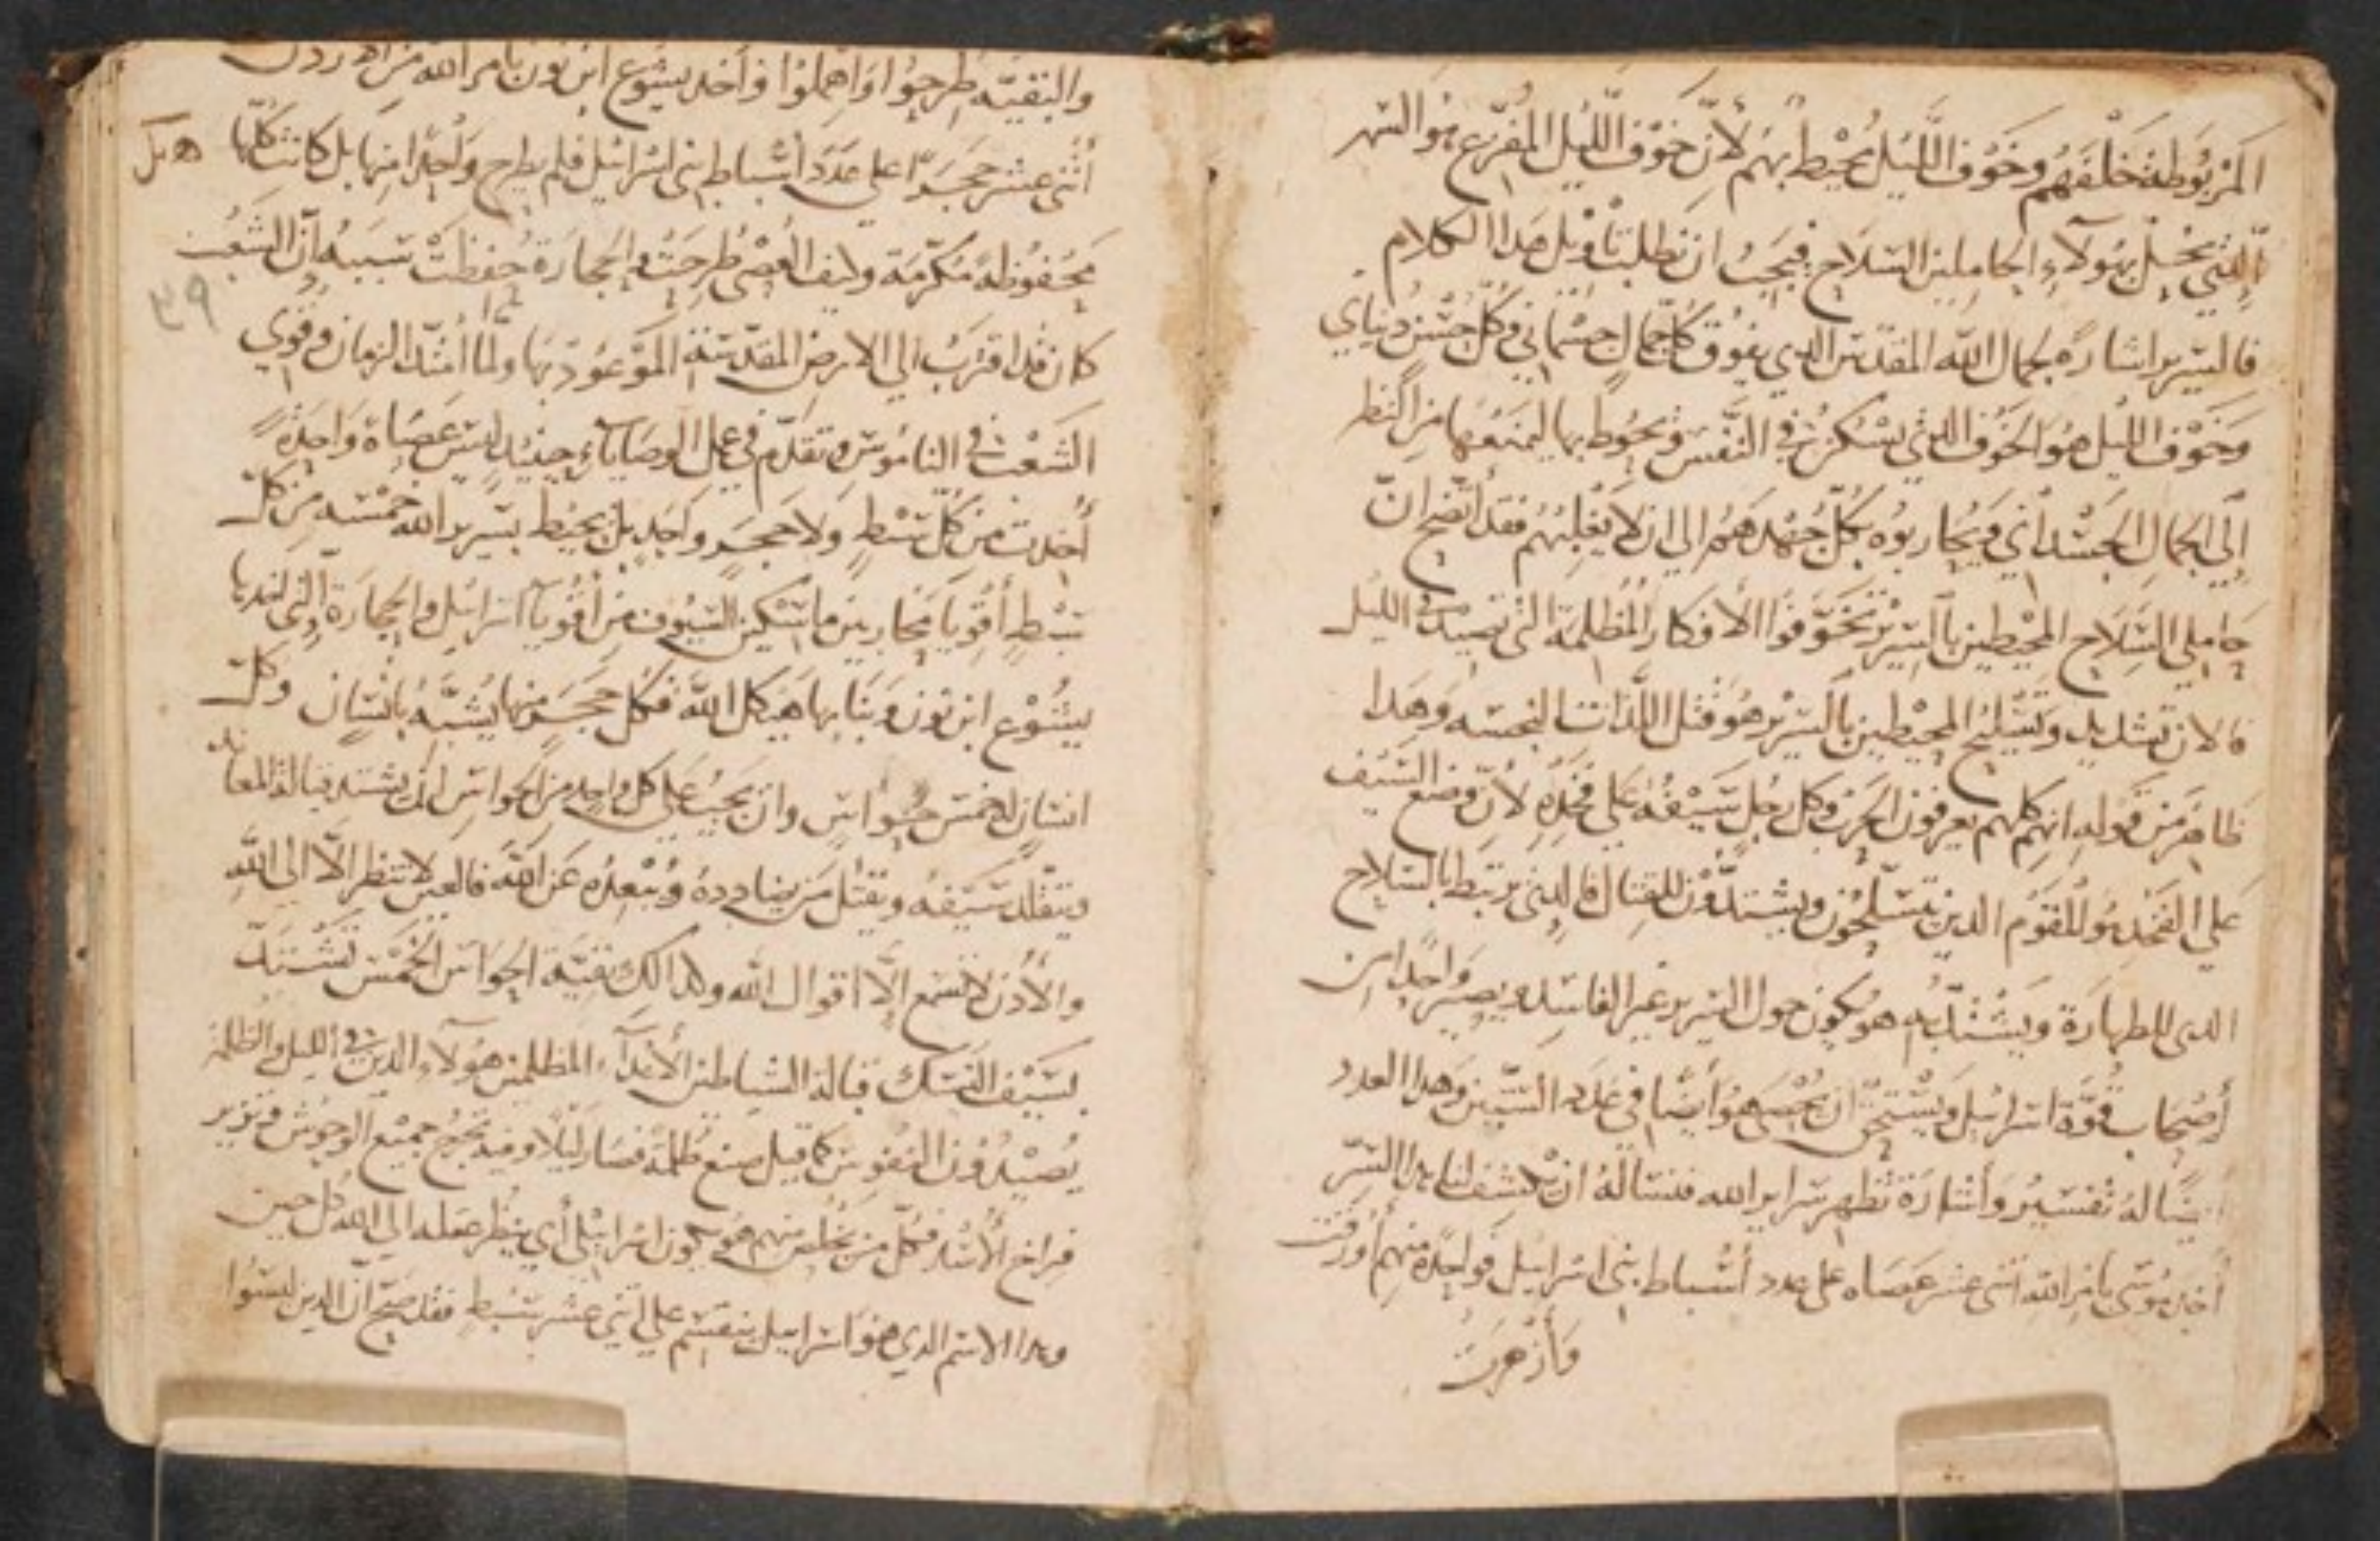 المربوطة خلفهم وخوف الليل يحيط بهم لأن خوف الليل المفزع هو السهر
الذي يحل بهولآء الحاملين السلاح فيجب ان نطلب تاويل هدا الكلام
فالسرير اشاره لجمال الله المقدس الدي يفوق كل جمال جسماني وكل حسن دنياي
وخوف الليل هو الخوف الدي يسكن في النفس ويحوط بها ليمنعها من النظر
إلى الجمال الجسداني ويحاربوه بكل جهدهم الي ان لا يغلبهم فقد أتضح ان
حاملي السلاح المحيطين بالسرير تخوفوا الأفكار المظلمة التي تصيد في الليل
فالان تشديد وتسليح المحيطين بالسرير هو قتل اللذات النجسه وهدا
ظاهر من قوله انهم كلهم يعرفون الحرب وكل رجل سيفه على فخذه لأن وضع السيف
على الفخد هو للقوم الدين يتسلحون ويشتدون للقتال فالدي يرتبط بالسلاح
الدى للطهارة ويشتد به هو يكون حول السرير غير الفاسد ويصير واحدا من
أصحاب قوة اسرائيل ويستحق ان يحسب هو أيضا في عدد الستين وهدا العدد
له تفسير وأشارة تظهر سراير الله فنساله ان يكشف لنا هدا السر
أخد موسى بأمر الله أثنى عشر عصاه على عدد أسباط بني اسرائيل فواحدة منهم أورقت
وأزهرت
والبقيه طرحوا واهملوا وأخد يشوع ابن نون بامر الله من الاردن
أثني عشر حجرا على عدد أسباط بني اسرائيل فلم يطرح واحدا منها بل كانت كلها
محفوظة مكرمة وكيف العصي طرحت والحجارة حفظت سببه أن الشعب
كان قد اقترب الي الارض المقدسة الموعود بها ولما امتد الزمان وقوي
الشعب في الناموس وتقدم في عمل الوصايا حينيد ليس عصاة واحدة
أخدت من كل سبط ولا حجر واحد بل يحيط بسرير الله خمسه من كل
سبط أقويا محاربين ماسكين السيوف من أقويآ اسرائيل والحجارة التي اخدها
يشوع ابن نون وبنا بها هيكل الله فكل حجر منها يشبه بانسان وكل
انسان له خمس حواس وان يجب على كل واحد من الحواس ان يشتد قبالة المعاند
ويتقلد سيفه ويقتل من يضادده ويبعده عن الله فالعين لا تنظر الا الى الله
والأدن لا تسمع إلا اقوال الله وكدالك بقية الحواس الخمس تشتد
بسيف النسك قبالة الشياطين الأعدآء المظلمين هولآء الدين في الليل والظلمة
يصيدون النفوس كما قيل صنع ظلمة فصار ليلا وفيه تخرج جميع الوحوش وتزير
فراخ الأسد فكل من يخلص منهم هو يكون اسرائيلي أي ينظر عقله الي الله كل حين
وهدا الاسم الدي هو اسراييل ينقسم علي اثني عشر سبط فقد صح ان الدين ليسوا
٣٩